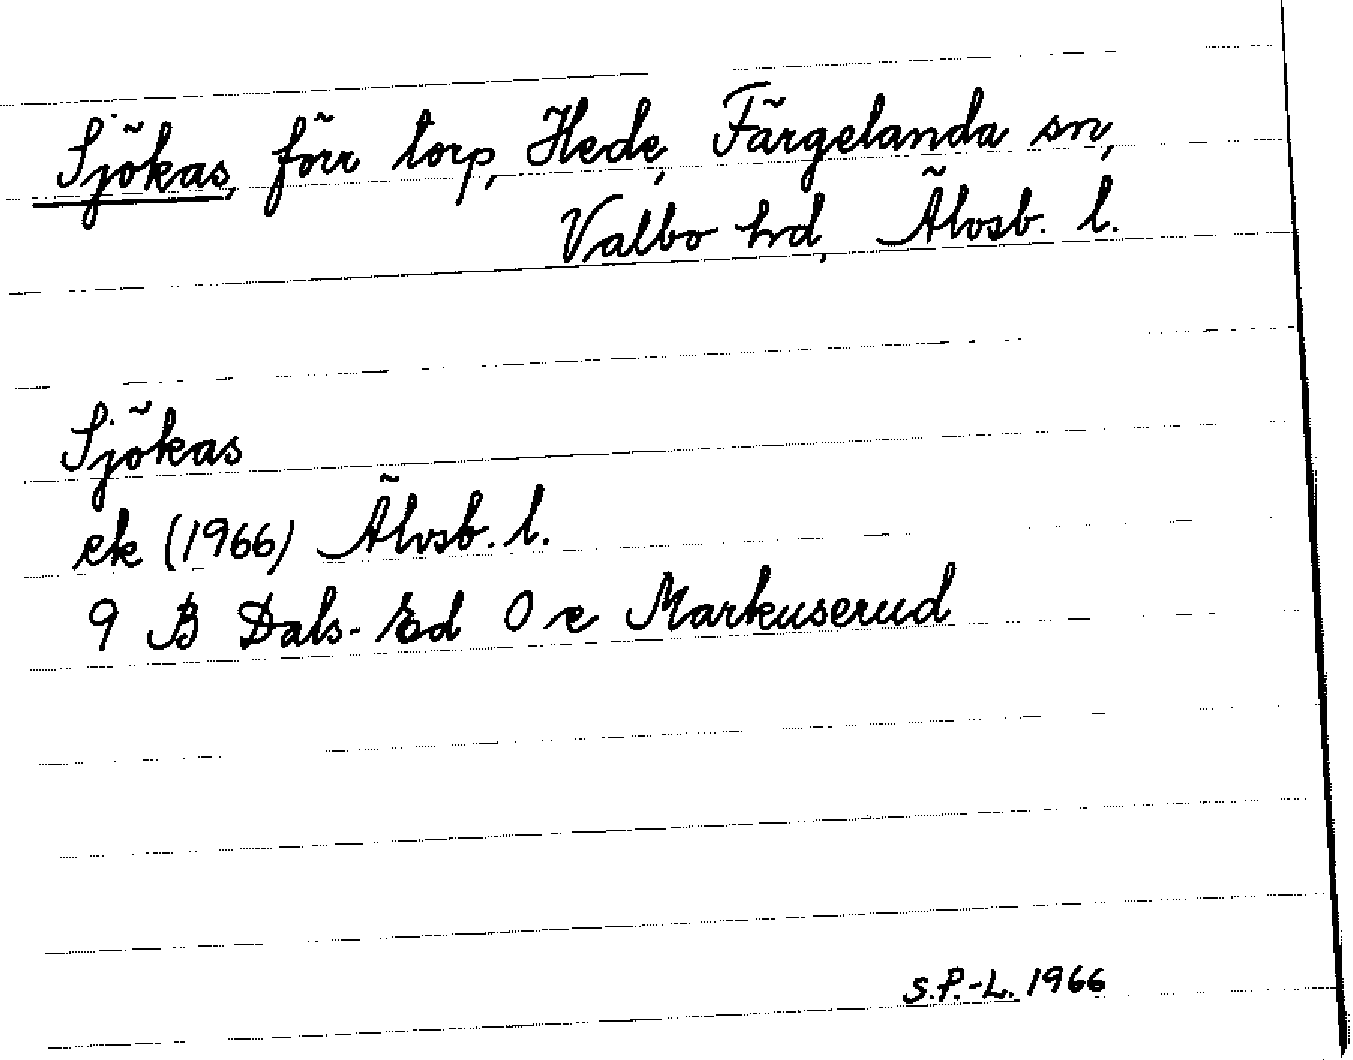 Sjökas, förr torp, Hede, Färgelanda sn,
Valbo hd, Älvsb. l.
Sjökas
ek (1966) Älvsb. l.
9 B Dals-Ed 0 e Markuserud
S.P.-L. 1966